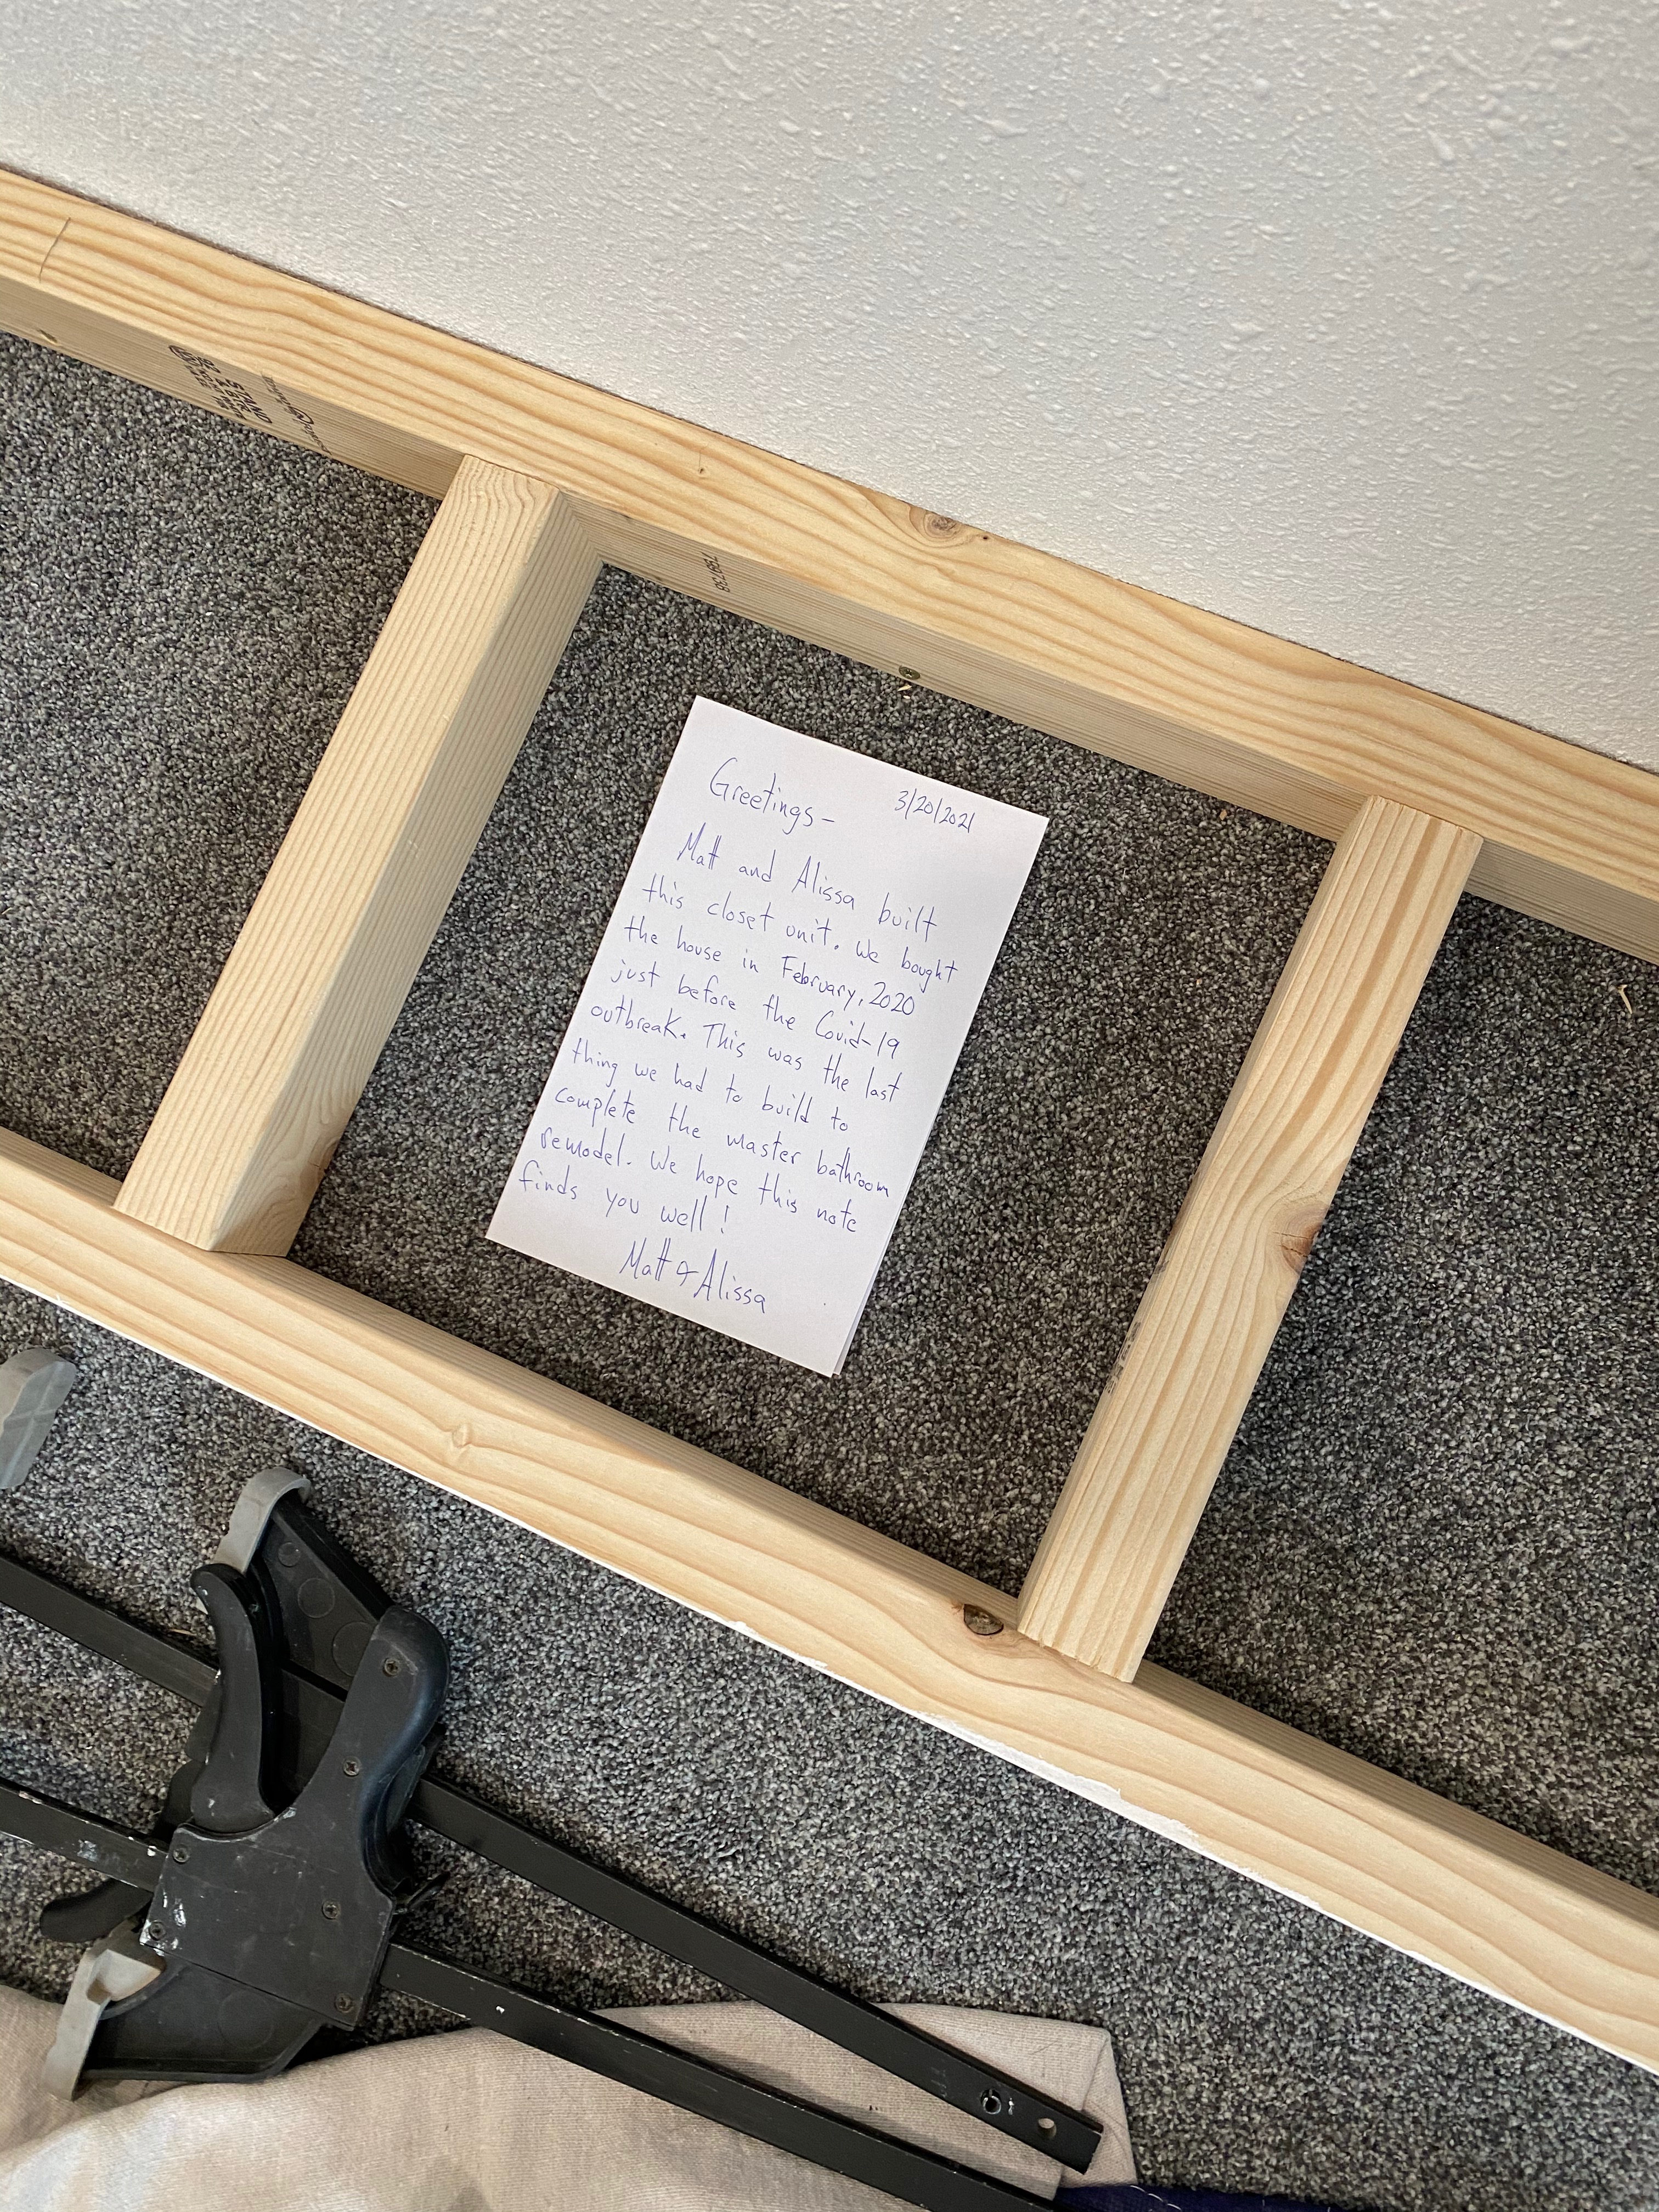 Greetings-
3/20/2021
Matt and Alissa built
this closet unit. We bought
the house in February, 2020
just before the Covid-19
outbreak. This was the last
thing we had to build to
complete the master bathroom
remodel. We hope this note
finds you well!
Matt & Alissa
STAND